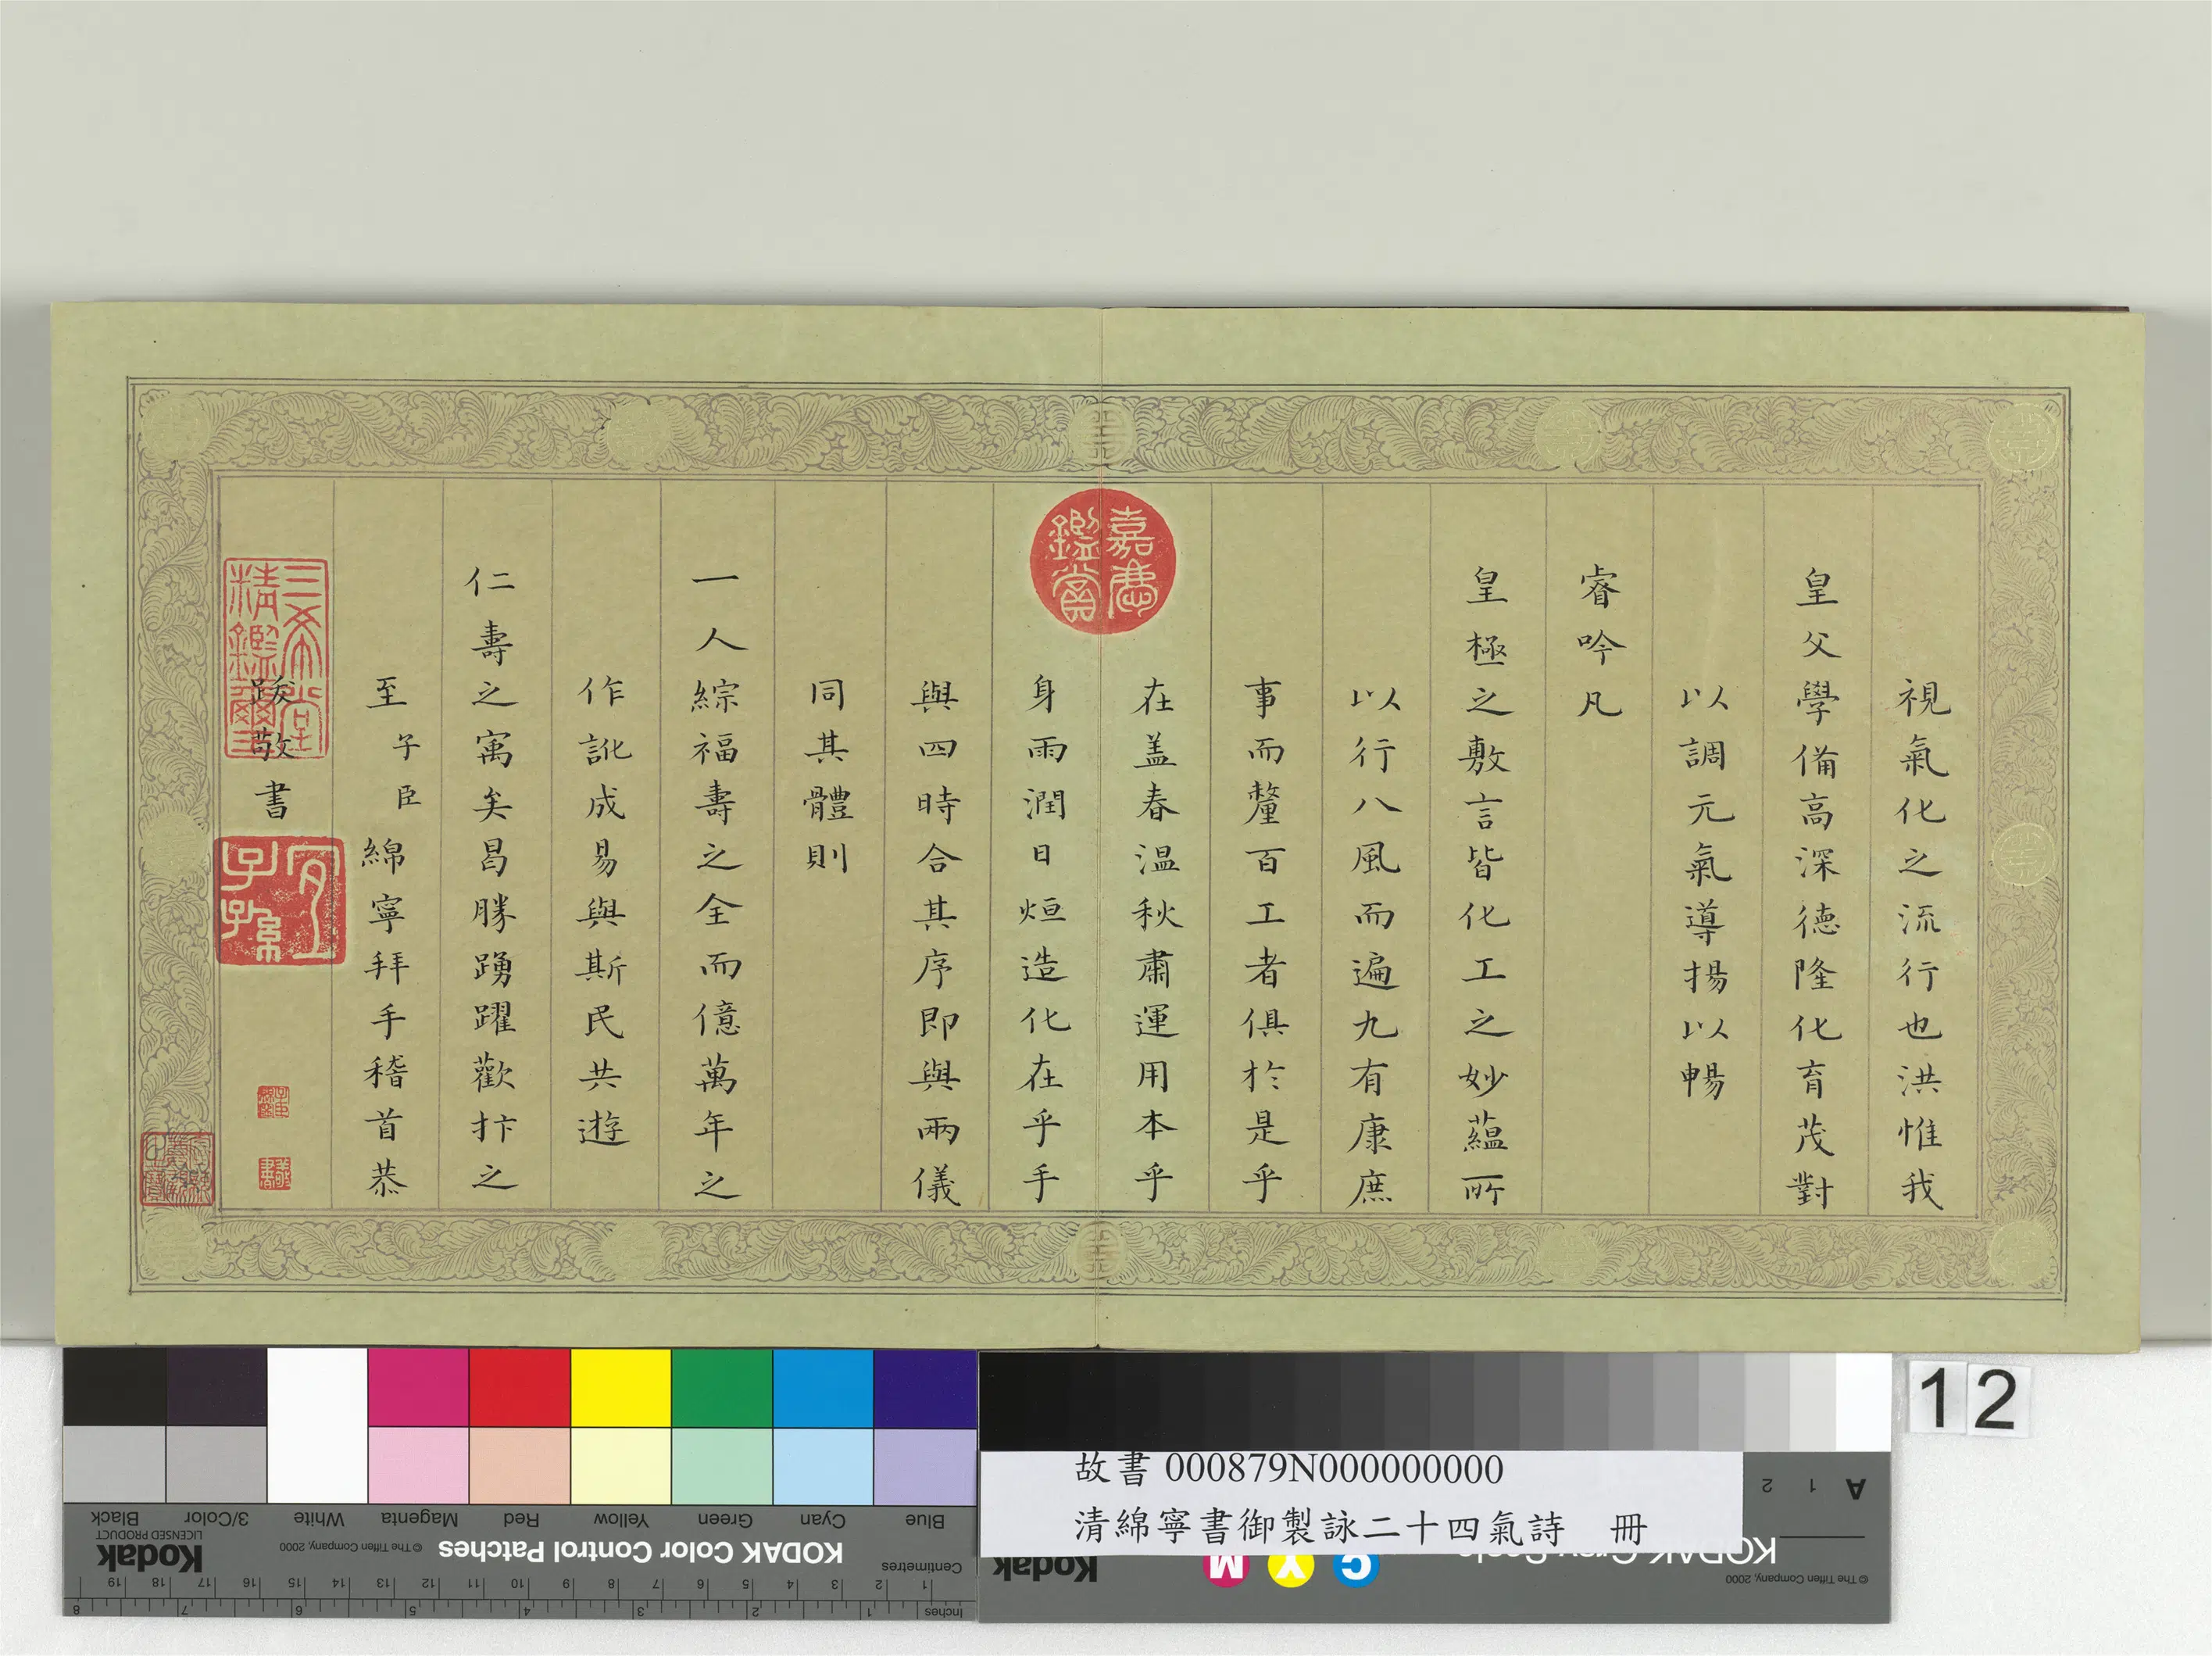 視氣化之流行也洪惟我
皇父學備高深德隆化育茂對
以調元氣導揚以暢
睿吟凡
皇極之敷言皆化工之妙蘊所
以行八風而遍九有康庶
事而釐百工者俱於是乎
在盖春温秋肅運用本乎
身雨潤日烜造化在乎手
與四時合其序即與兩儀
同其體則
一人綜福壽之全而億萬年之
作訛成易與斯民共遊
仁壽之寓矣曷勝踴躍歡抃之
至子臣綿寧拜手稽首恭
跋敬書
嘉慶鑑賞
三希堂精鑑璽
宜子孫
12
故書 000879N000000000
清綿寧書御製詠二十四氣詩 冊
Blue Cyan Green Yellow Red Magenta White 3/Color Black
KODAK Color Control Patches © The Tiffen Company, 2000 Kodak LICENSED PRODUCT
Centimetres 1 2 3 4 5 6 7 8 9 10 11 12 13 14 15 16 17 18 19
Inches 1 2 3 4 5 6 7 8
A 1 2
C Y M
Kodak
© The Tiffen Company, 2000